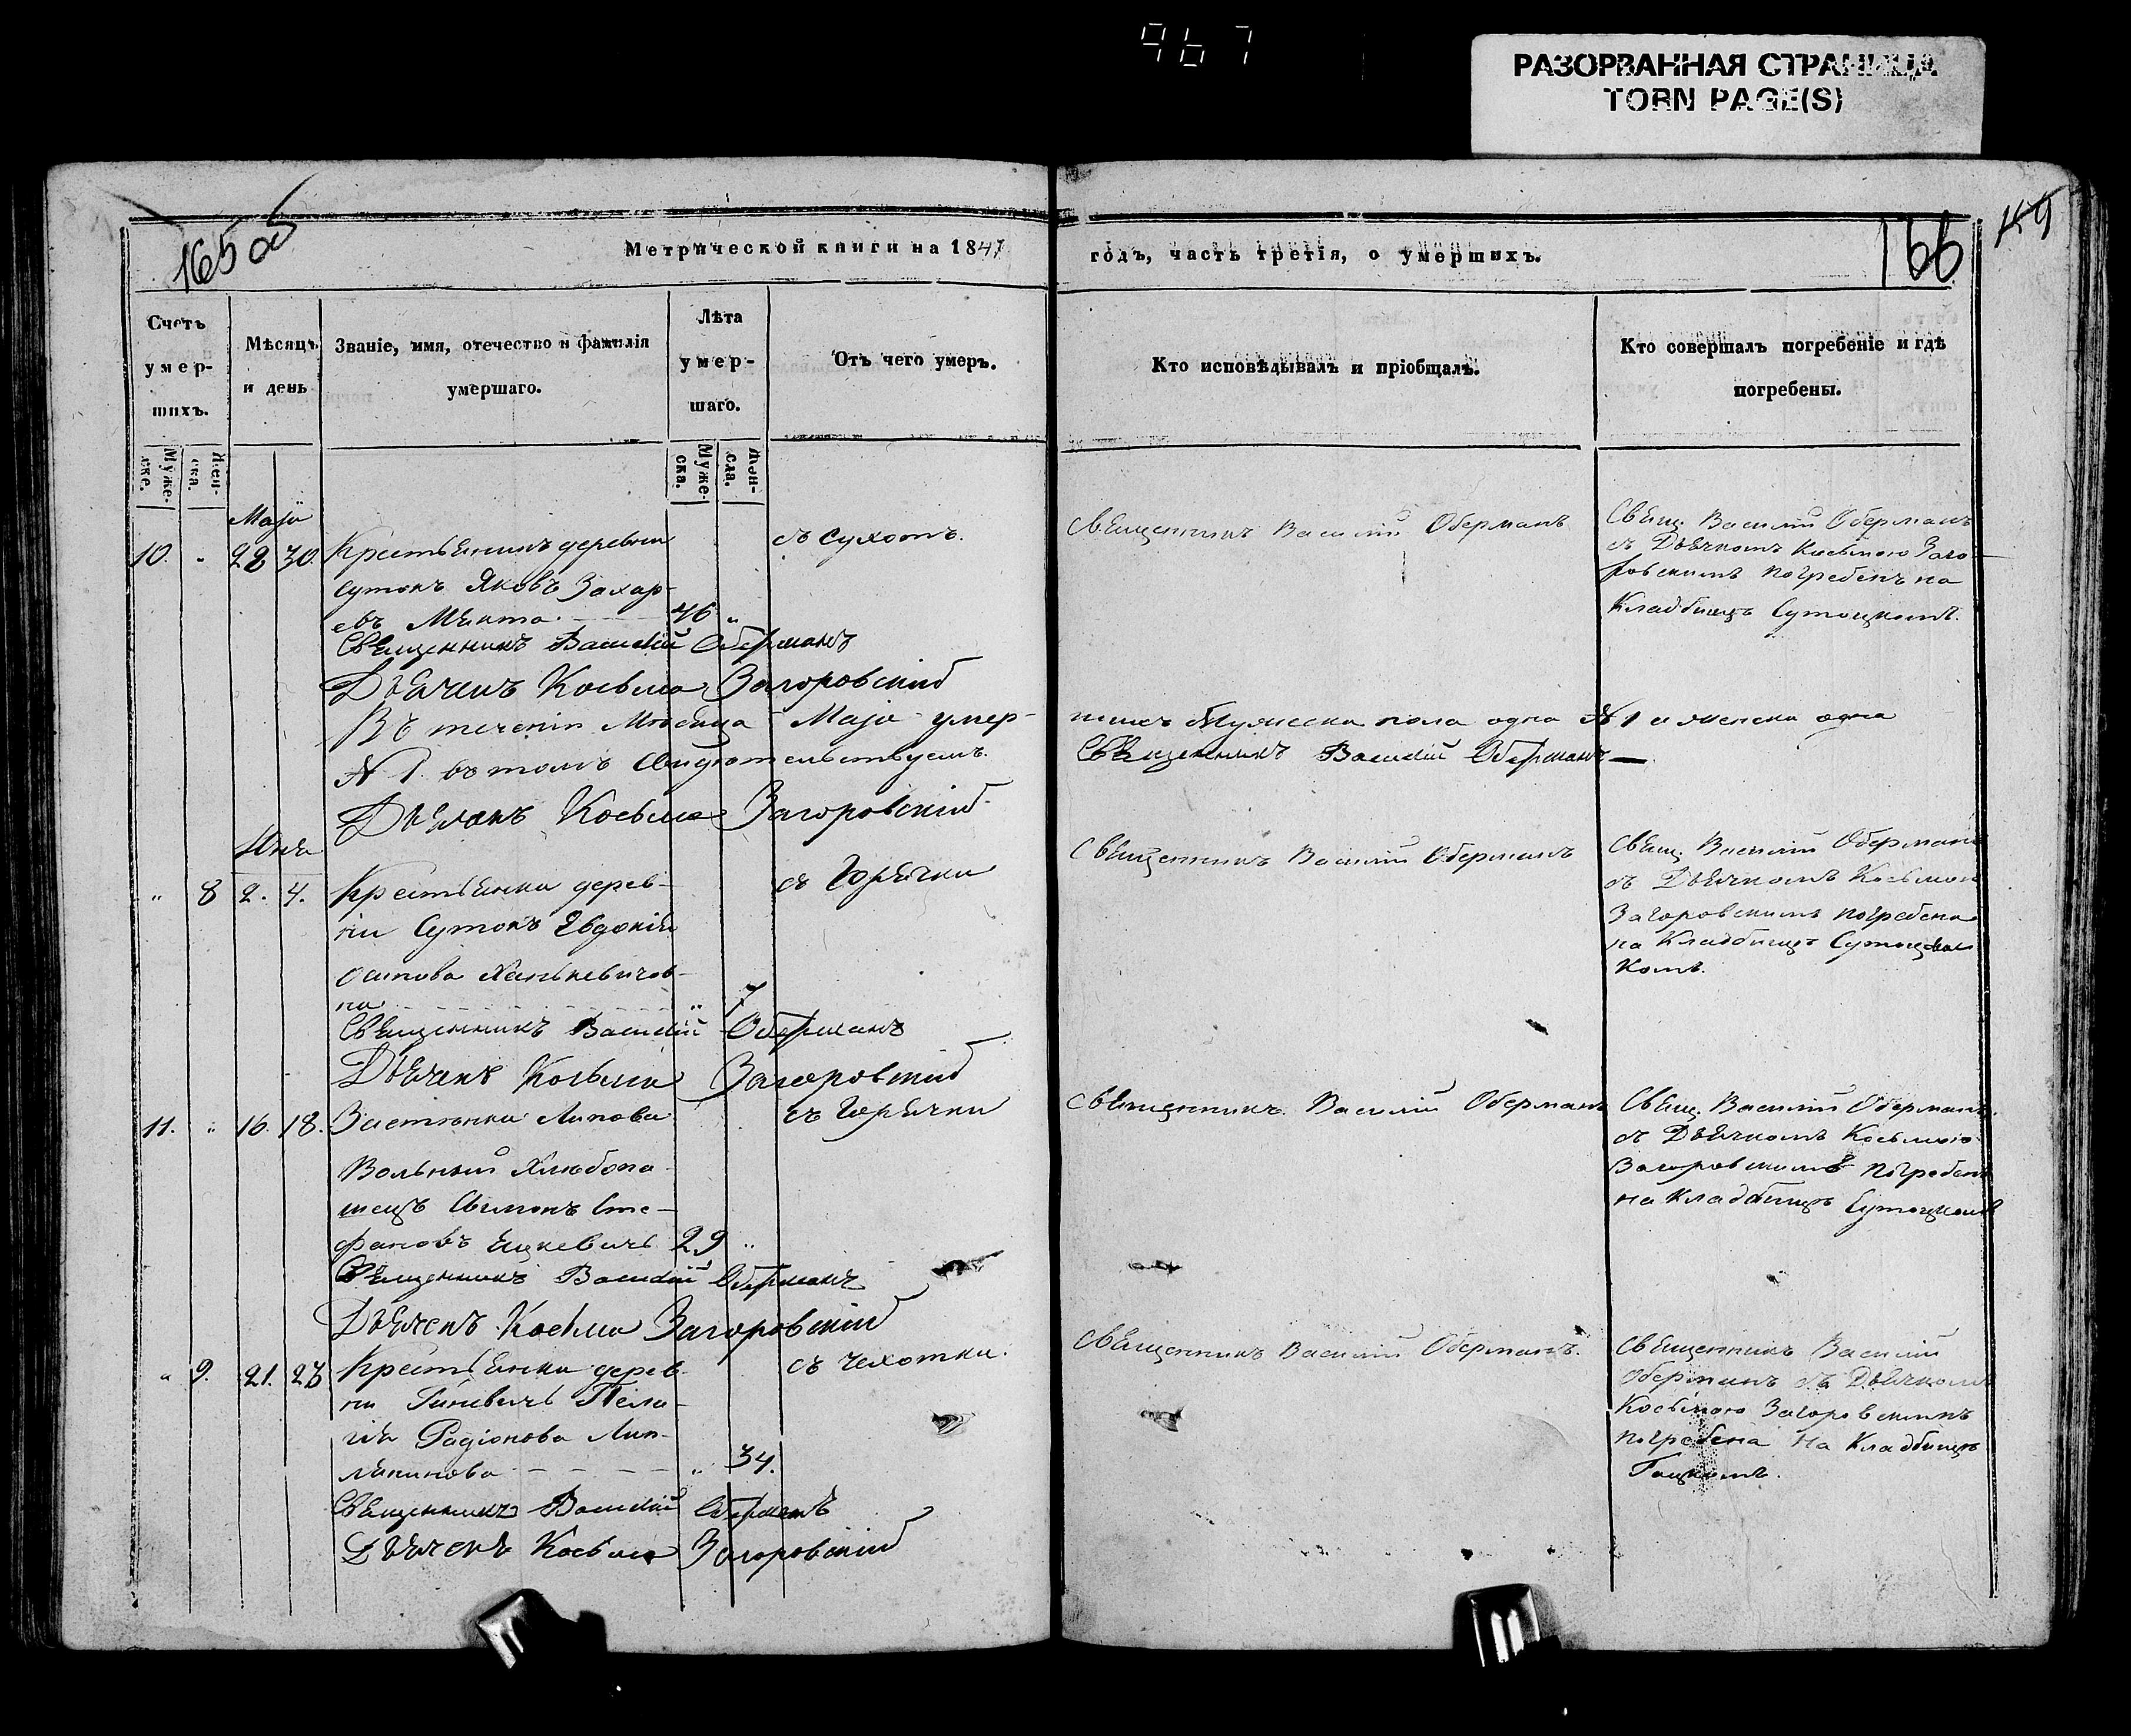 967
РАЗОРВАННАЯ СТРАНИЦА
TORN PAGE(S)
165 об
166
Метрической книги на 1847
годъ, часть третія, о умершихъ.
Счетъ умер-шихъ.
Мѣсяцъ и день
Званіе, имя, отечество и фамилія умершаго.
Лѣта умер-шаго.
Отъ чего умеръ.
Кто исповѣдывалъ и пріобщалъ.
Кто совершалъ погребеніе и гдѣ погребены.
Муже-ске.
Жен-ска.
Муже-ска.
Жен-ска.
Маjя
10. " 28 30. Крестьянинъ деревни
сутокъ Яковъ Захар-
евъ 46 "
съ сухотъ.
Священникъ Василій Оберманъ
Свящ. Василій Оберманъ
съ Дьячкомъ Косьмою Заго-
ровскимъ погребенъ на
Кладбищѣ Сутоцкомъ.
Священникъ Василій Оберманъ
Дьячекъ Косьма Загоровскій
Въ теченіи Мѣсяца Маjя умер-
шихъ Мужеска пола одна № 1 и женска одна
№ 1. въ томъ Свидѣтельствуемъ.
Священникъ Василій Оберманъ
Дьячекъ Косьма Загоровскій
Юня
" 8 2. 4. Крестьянка дерев-
ни Сутокъ Евдокія
Осипова Ханькевичов-
на " 7
съ Горячки
Священникъ Василій Оберманъ
Свящ. Василій Оберманъ
съ Дьячкомъ Косьмою
Загоровскимъ погребена
на Кладбищѣ Сутоц
комъ.
Священникъ Василій Оберманъ
Дьячекъ Косьма Загоровскій
11. " 16. 18. Застѣнка Липова
Вольный Хлѣбопа-
шецъ Симонъ Сте-
фановъ Яцкевичъ 29 "
съ Горячки
Священникъ Василій Оберманъ
Свящ. Василій Оберманъ.
съ Дьячкомъ Косьмою
Загоровскимъ погребенъ
на Кладбищѣ Сутоцкомъ
Священникъ Василій Оберманъ
Дьячекъ Косьма Загоровскій
" 9. 21. 23 Крестьянка дерев
ни Гиневичъ Пела-
гія Радіонова Лип-
" 34.
съ чехотки.
Священникъ Василій Оберманъ.
Священникъ Василій
Оберманъ съ Дьячкомъ
Косьмою Загоровскимъ
погребена на Кладбищѣ
Гацкомъ.
Священникъ Василій Оберманъ
Дьячекъ Косьма Загоровскій